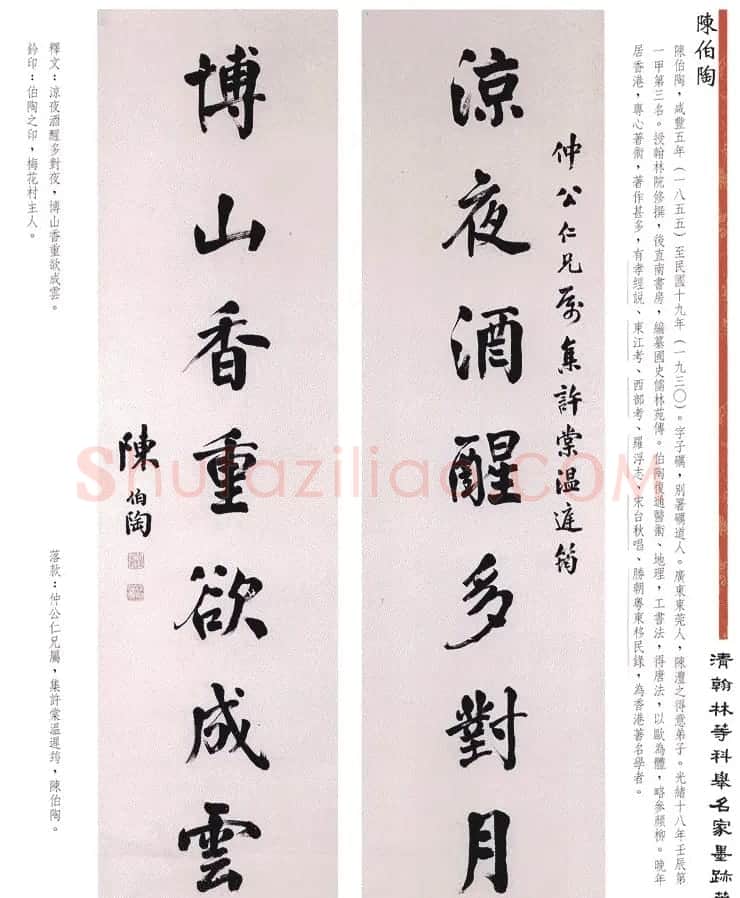 清翰林等科舉名家墨跡
陳伯陶
陳伯陶，咸豐五年（一八五五）至民國十九年（一九三〇）。字子礪，別署礪道人。廣東東莞人，陳澧之得意弟子。光緒十八年壬辰第
一甲第三名。授翰林院修撰，後直南書房，編纂國史儒林苑傳。伯陶復通醫術、地理，工書法，得唐法，以歐為體，略參顏柳。晚年
居香港，專心著術，著作甚多，有孝經說、東江考、西部考、羅浮志、宋台秋唱、勝朝粵東移民錄，為香港著名學者。
仲公仁兄屬集許棠溫庭筠
涼夜酒醒多對月
博山香重欲成雲
陳伯陶
釋文：涼夜酒醒多對夜，博山香重欲成雲。
鈐印：伯陶之印，梅花村主人。
落款：仲公仁兄屬，集許棠溫遲筠，陳伯陶。
Shufaziliao.COM